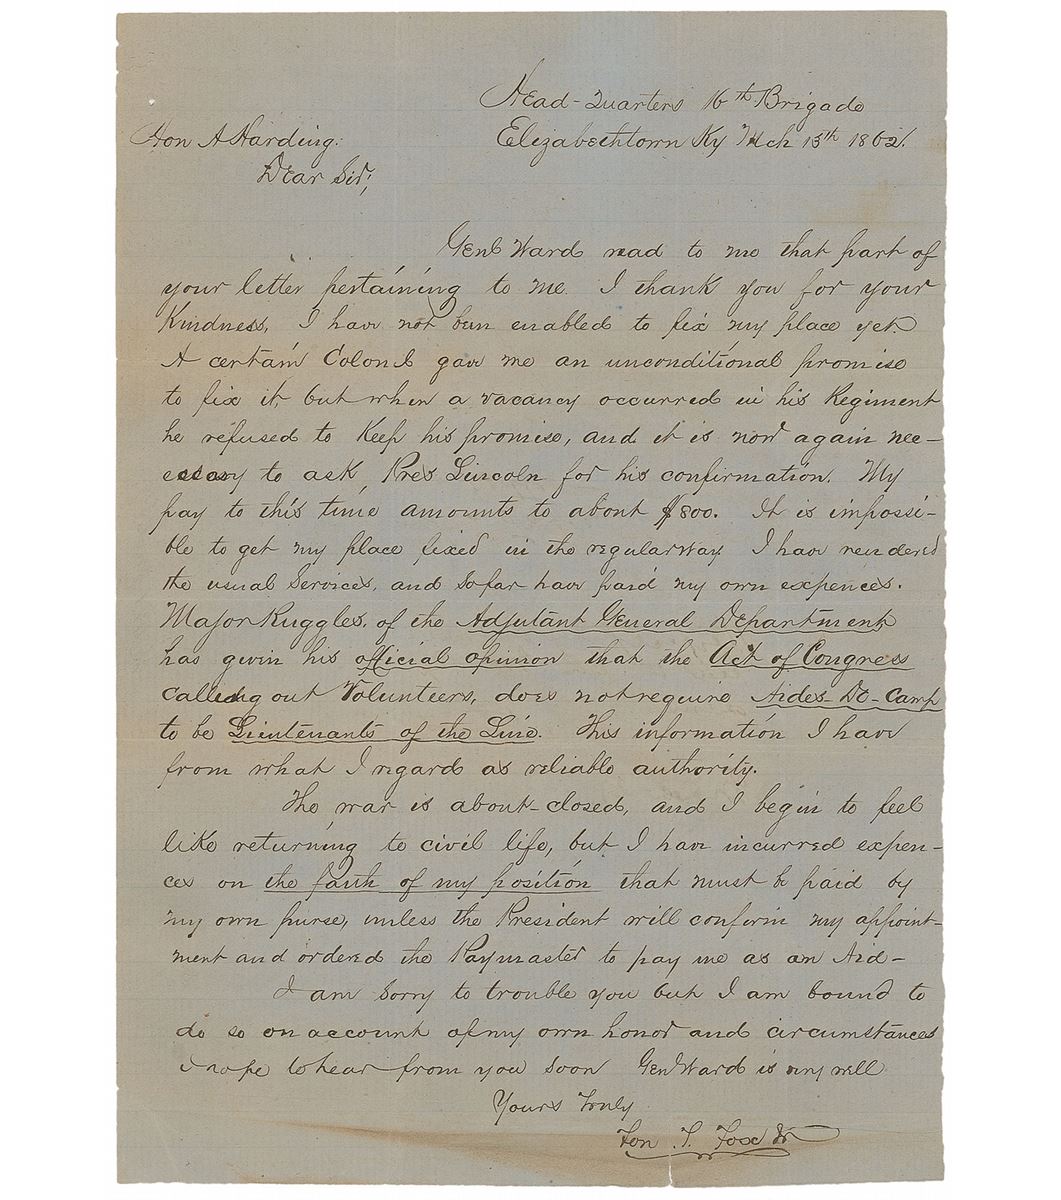 Head-Quarters 16th Brigade
Elizabethtown Ky Mch 15th 1862.
Hon A Harding:
Dear Sir;
Genl Ward read to me that part of
your letter pertaining to me. I thank you for your
Kindness, I have not been enabled to fix my place yet.
A certain Colonel gave me an unconditional promise
to fix it, but when a vacancy occurred in his Regiment
he refused to Keep his promise, and it is now again nec-
essary to ask Pres Lincoln for his confirmation. My
pay to this time amounts to about $800. It is impossi-
ble to get my place fixed in the regular way. I have rendered
the usual services, and so far have paid my own expences.
Major Ruggles, of the Adjutant General Department
has given his official opinion that the Act of Congress
calling out Volunteers, does not require Aides-De-Camp
to be Lieutenants of the Line. This information I have
from what I regard as reliable authority.
The war is about closed, and I begin to feel
like returning to civil life, but I have incurred expen-
ces on the faith of my position that must be paid by
my own purse, unless the President will confirm my appoint-
ment and ordered the Paymaster to pay me as an Aid-
I am sorry to trouble you but I am bound to
do so on account of my own honor and circumstances
I hope to hear from you soon Genl Ward is very well
Yours Truly
Fon T. Fox Jr